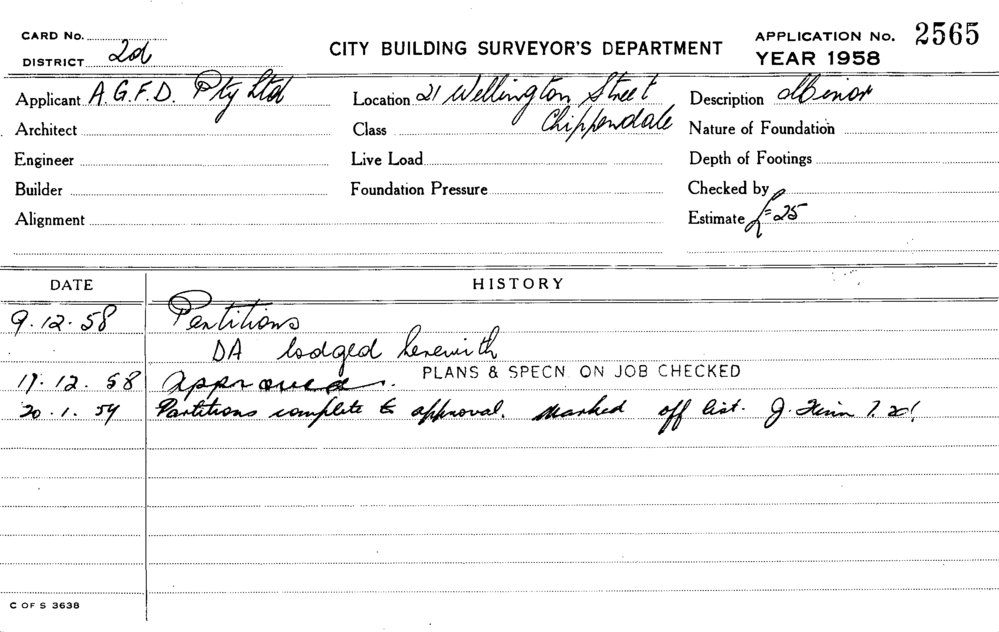 CARD No.
DISTRICT 2d
CITY BUILDING SURVEYOR'S DEPARTMENT
APPLICATION No. 2565
YEAR 1958
Applicant A.G.F.D. Pty Ltd
Location 21 Wellington Street
Chippendale
Description Minor
Architect
Class
Nature of Foundation
Engineer
Live Load
Depth of Footings
Builder
Foundation Pressure
Checked by
Alignment
Estimate £=25
DATE HISTORY
9.12.58 Partitions
DA lodged herewith
17.12.58 Approved. PLANS & SPECN. ON JOB CHECKED
20.1.59 Partitions complete to approval. Marked off list. J.
C OF S 3638